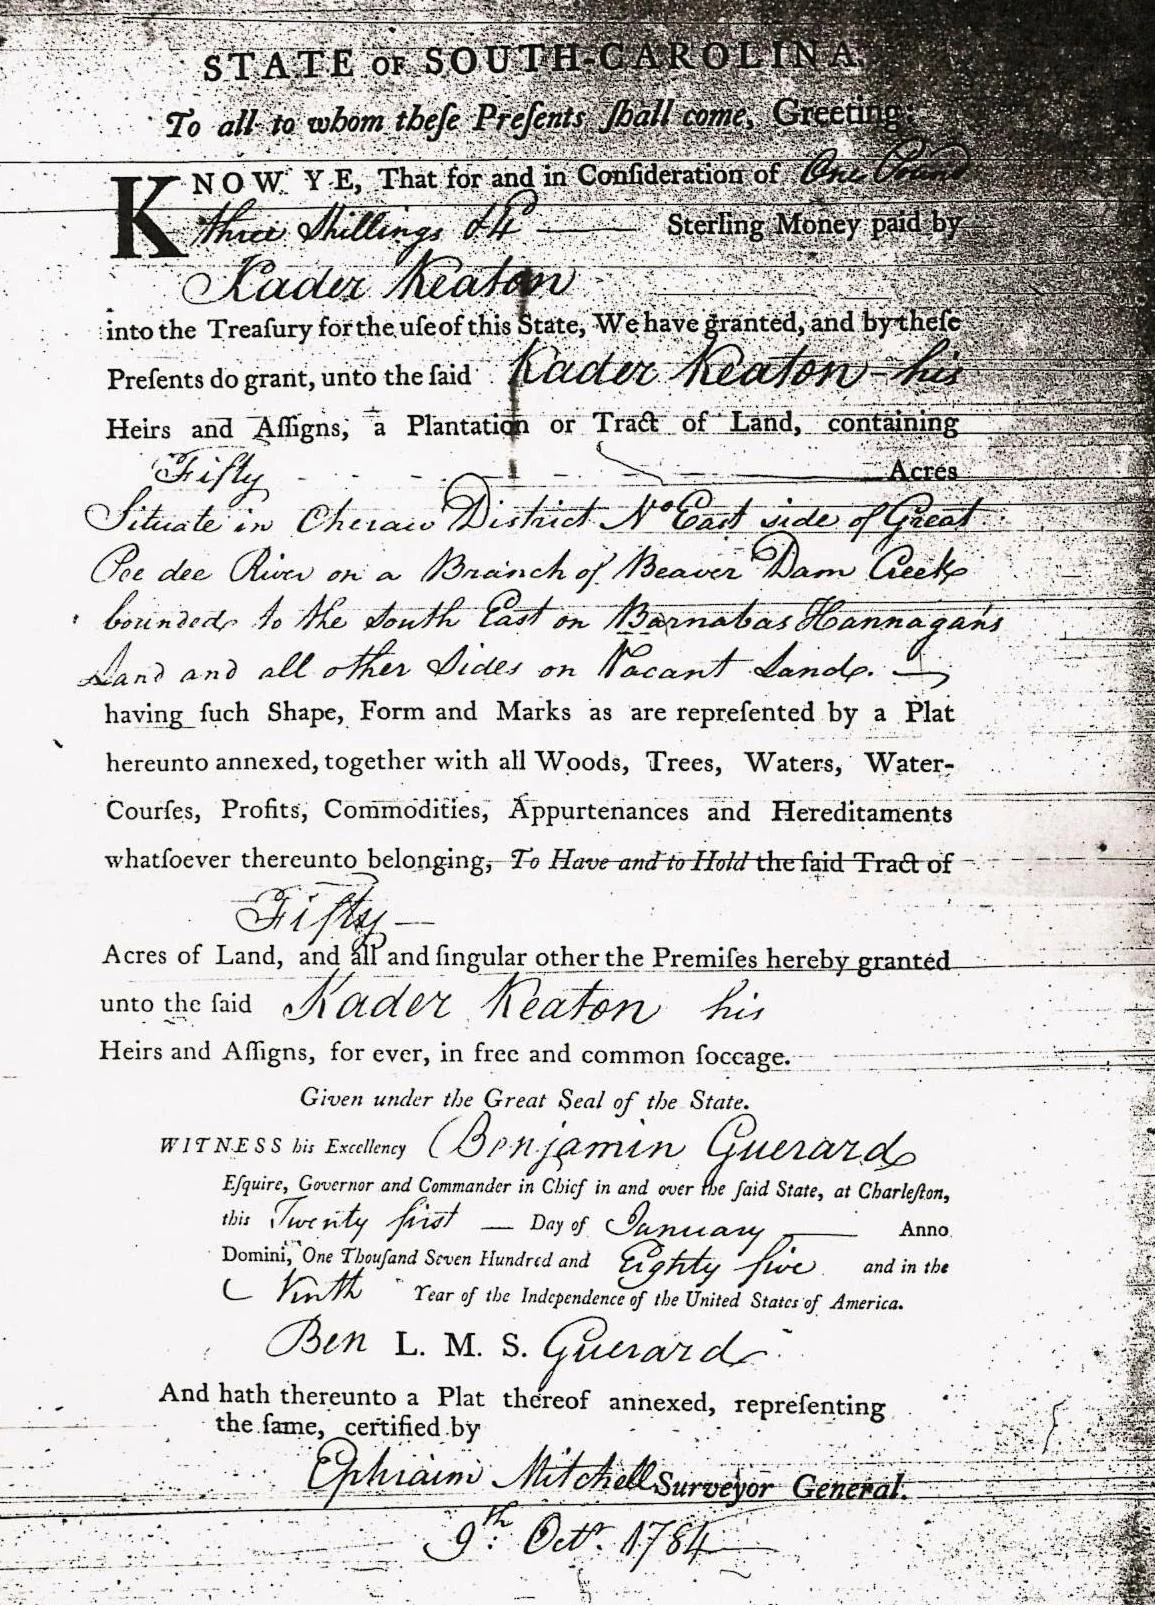 STATE OF SOUTH-CAROLINA.
To all to whom theſe Preſents ſhall come, Greeting:
KNOW YE, That for and in Conſideration of One Pound
three Shillings & 4 Sterling Money paid by
Kader Keaton
into the Treaſury for the uſe of this State, We have granted, and by theſe
Preſents do grant, unto the ſaid Kader Keaton his
Heirs and Aſſigns, a Plantation or Tract of Land, containing
Fifty Acres
Situate in Cheraw District No East side of Great
Pee dee River on a Branch of Beaver Dam Creek
bounded to the South East on Barnabas Hannagan's
Land and all other Sides on Vacant Land.
having ſuch Shape, Form and Marks as are repreſented by a Plat
hereunto annexed, together with all Woods, Trees, Waters, Water-
Courſes, Profits, Commodities, Appurtenances and Hereditaments
whatſoever thereunto belonging, To Have and to Hold the ſaid Tract of
Fifty
Acres of Land, and all and ſingular other the Premiſes hereby granted
unto the ſaid Kader Keaton his
Heirs and Aſſigns, for ever, in free and common ſoccage.
Given under the Great Seal of the State.
WITNESS his Excellency Benjamin Guerard
Eſquire, Governor and Commander in Chief in and over the ſaid State, at Charleſton,
this Twenty first Day of January Anno
Domini, One Thouſand Seven Hundred and Eighty five and in the
Ninth Year of the Independence of the United States of America.
Ben L. M. S. Guerard
And hath thereunto a Plat thereof annexed, repreſenting
the ſame, certified by
Ephraim Mitchell Surveyor General.
9th. Octr. 1784